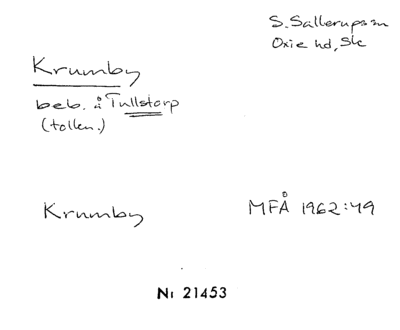 S. Sallerups sn
Oxie hd, Sk
Krumby
beb. å Tullstorp
(tollen.)
Krumby
MFÅ 1962:49
NI 21453